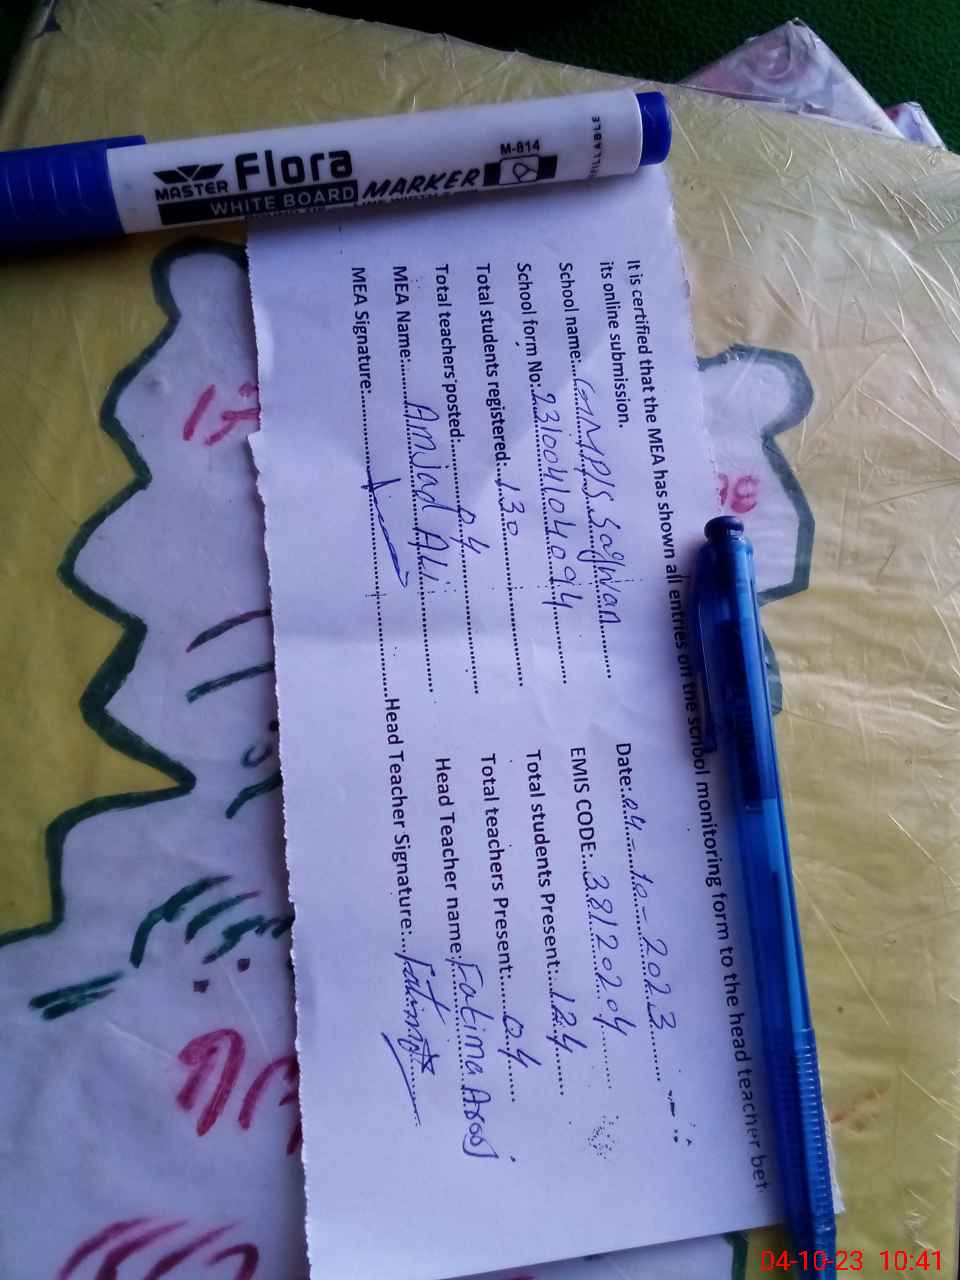 MASTER Flora M-814
WHITE BOARD MARKER
It is certified that the MEA has shown all entries on the school monitoring form to the head teacher
its online submission.
School name:...GMP/S Sagwan...... Date:.04-10-2023......
School form No:.231004104094...... EMIS CODE:...38120204......
Total students registered:...130...... Total students Present:...124......
Total teachers posted:......04...... Total teachers Present:......04......
MEA Name:......Amjad Ali...... Head Teacher name:.Fatima Arooj.
MEA Signature:............ Head Teacher Signature:...Fatima......
04-10-23 10:41